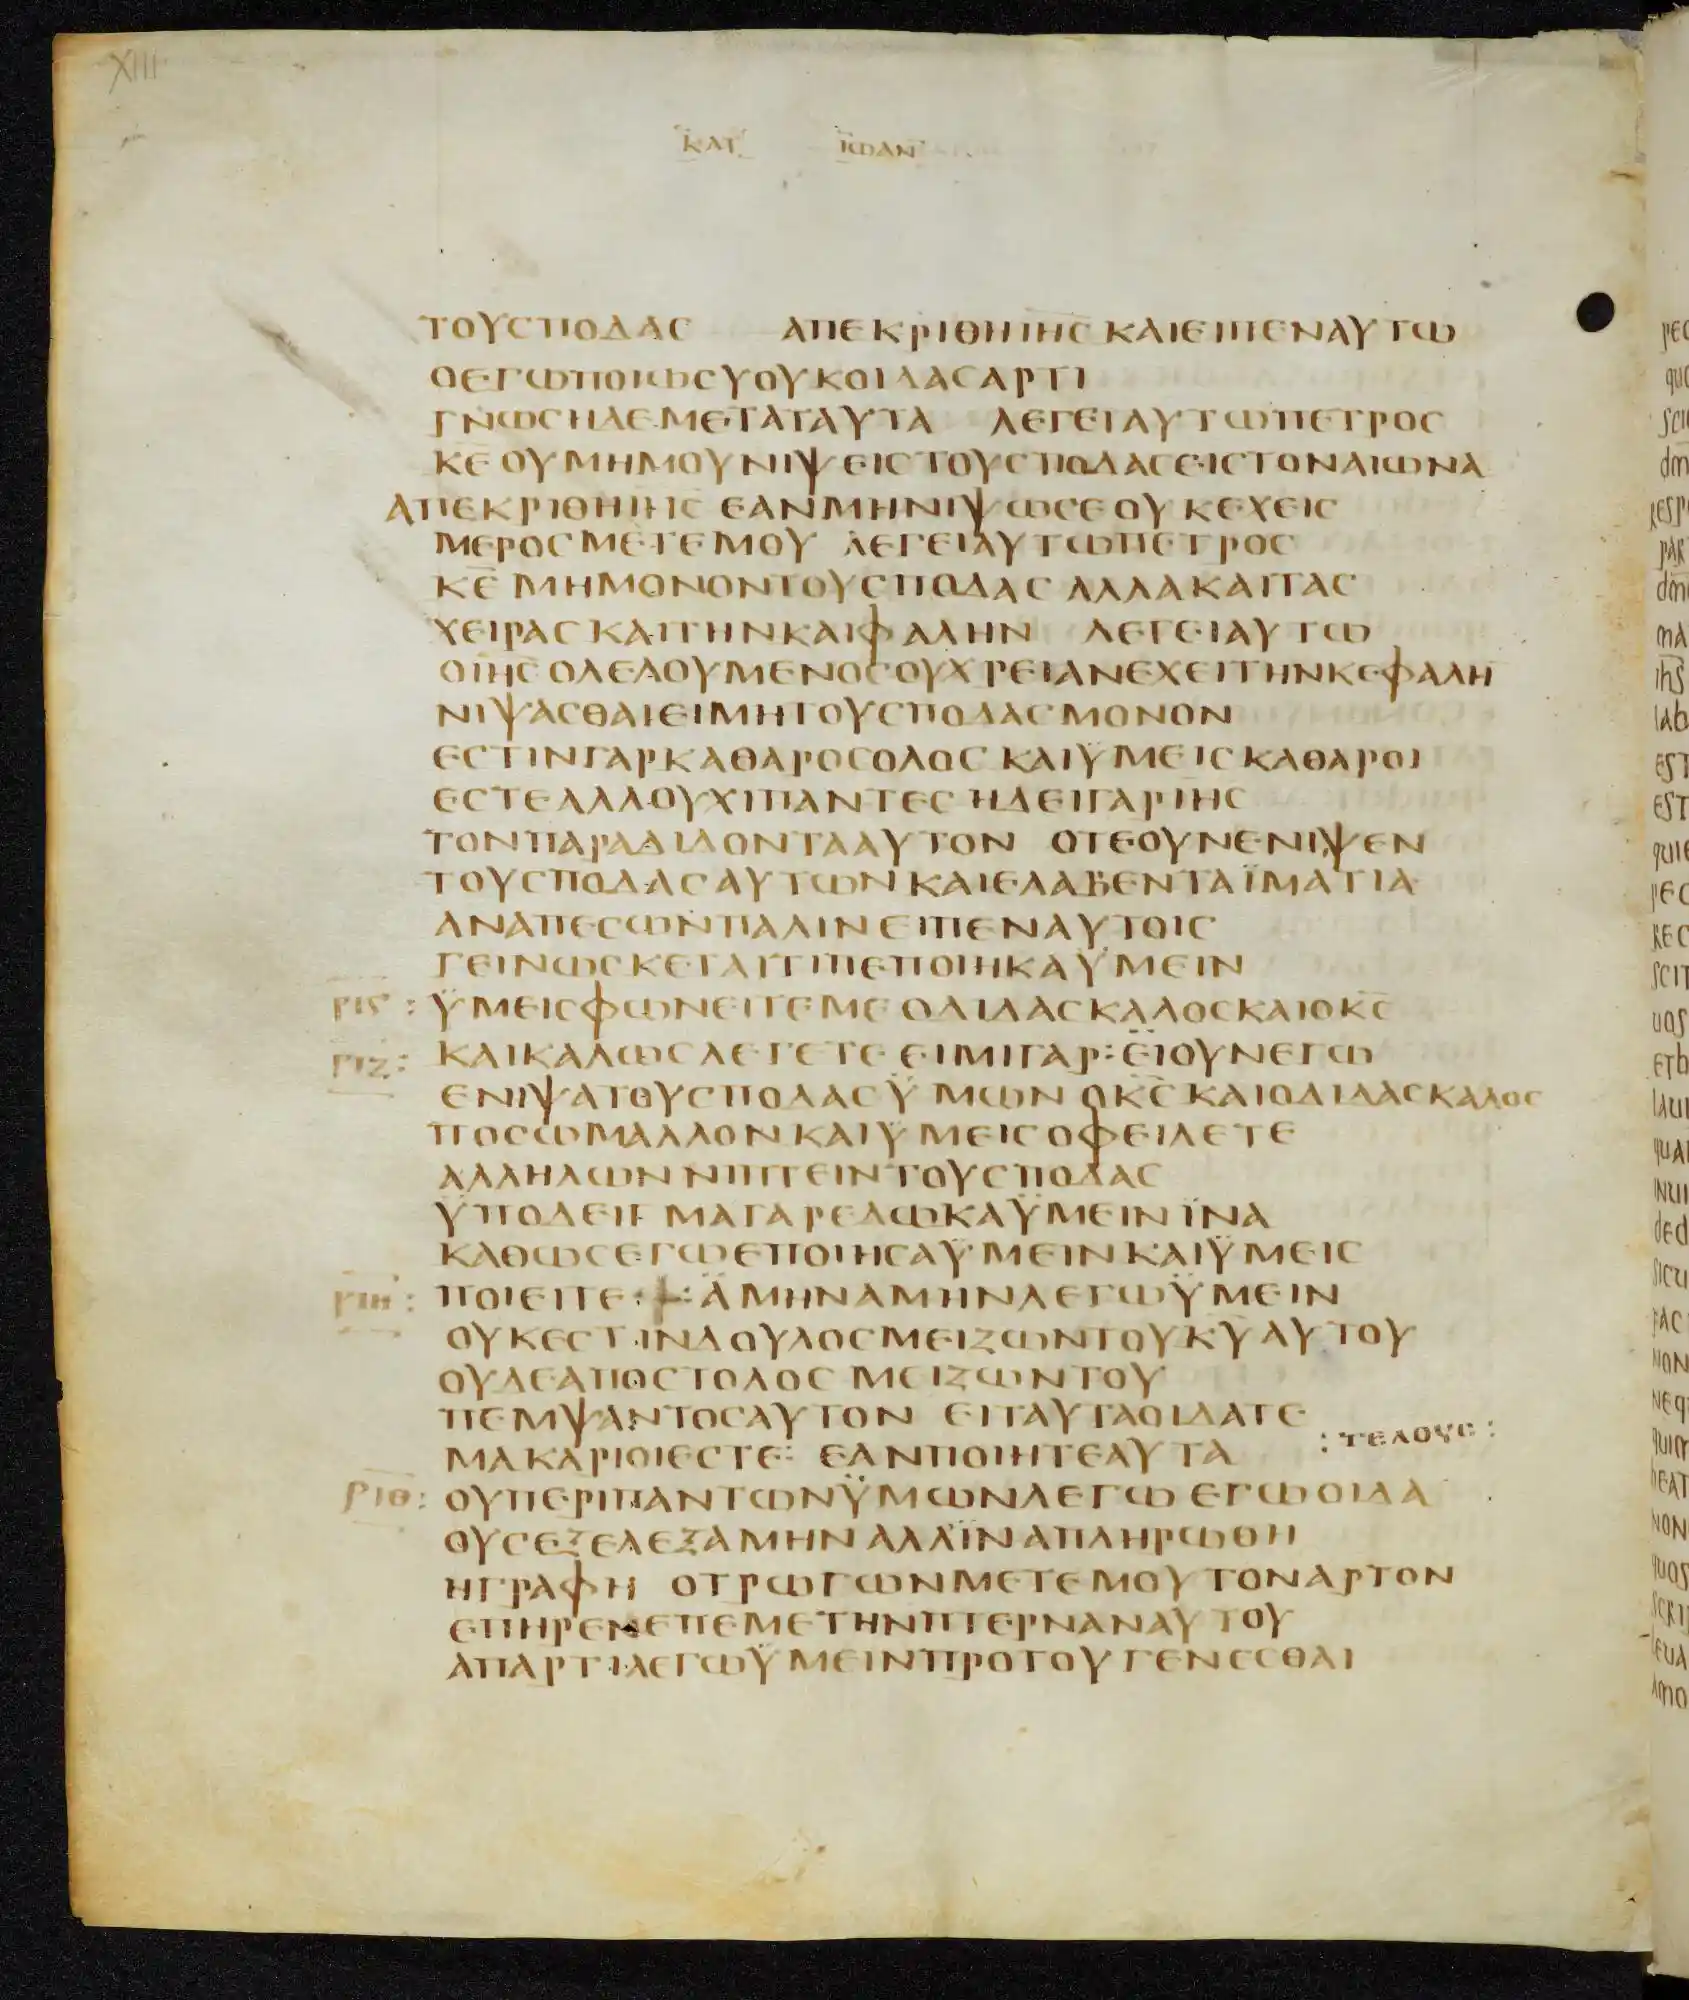 XIII
ΚΑΤ ΙΩΑΝ
ΤΟΥΣ ΠΟΔΑΣ ΑΠΕΚΡΙΘΗ ΙΗΣ ΚΑΙ ΕΙΠΕΝ ΑΥΤΩ
Ο ΕΓΩ ΠΟΙΩ ΣΥ ΟΥΚ ΟΙΔΑΣ ΑΡΤΙ
ΓΝΩΣΗ ΔΕ ΜΕΤΑ ΤΑΥΤΑ ΛΕΓΕΙ ΑΥΤΩ ΠΕΤΡΟΣ
ΚΕ ΟΥ ΜΗ ΜΟΥ ΝΙΨΕΙΣ ΤΟΥΣ ΠΟΔΑΣ ΕΙΣ ΤΟΝ ΑΙΩΝΑ
ΑΠΕΚΡΙΘΗ ΙΗΣ ΕΑΝ ΜΗ ΝΙΨΩ ΣΕ ΟΥΚ ΕΧΕΙΣ
ΜΕΡΟΣ ΜΕΤ ΕΜΟΥ ΛΕΓΕΙ ΑΥΤΩ ΠΕΤΡΟΣ
ΚΕ ΜΗ ΜΟΝΟΝ ΤΟΥΣ ΠΟΔΑΣ ΑΛΛΑ ΚΑΙ ΤΑΣ
ΧΕΙΡΑΣ ΚΑΙ ΤΗΝ ΚΑΙΦΑΛΗΝ ΛΕΓΕΙ ΑΥΤΩ
Ο ΙΗΣ Ο ΛΕΛΟΥΜΕΝΟΣ ΟΥ ΧΡΕΙΑΝ ΕΧΕΙ ΤΗΝ ΚΕΦΑΛΗ
ΝΙΨΑΣΘΑΙ ΕΙ ΜΗ ΤΟΥΣ ΠΟΔΑΣ ΜΟΝΟΝ
ΕΣΤΙΝ ΓΑΡ ΚΑΘΑΡΟΣ ΟΛΟΣ ΚΑΙ ΫΜΕΙΣ ΚΑΘΑΡΟΙ
ΕΣΤΕ ΑΛΛ ΟΥΧΙ ΠΑΝΤΕΣ ΗΔΕΙ ΓΑΡ ΙΗΣ
ΤΟΝ ΠΑΡΑΔΙΔΟΝΤΑ ΑΥΤΟΝ ΟΤΕ ΟΥΝ ΕΝΙΨΕΝ
ΤΟΥΣ ΠΟΔΑΣ ΑΥΤΩΝ ΚΑΙ ΕΛΑΒΕΝ ΤΑ ΪΜΑΤΙΑ
ΑΝΑΠΕΣΩΝ ΠΑΛΙΝ ΕΙΠΕΝ ΑΥΤΟΙΣ
ΓΕΙΝΩΣΚΕΤΑΙ ΤΙ ΠΕΠΟΙΗΚΑ ΫΜΕΙΝ
ΡΙϚ : ΫΜΕΙΣ ΦΩΝΕΙΤΕ ΜΕ Ο ΔΙΔΑΣΚΑΛΟΣ ΚΑΙ Ο ΚΣ
ΡΙΖ : ΚΑΙ ΚΑΛΩΣ ΛΕΓΕΤΕ ΕΙΜΙ ΓΑΡ : ΕΙ ΟΥΝ ΕΓΩ
ΕΝΙΨΑ ΤΟΥΣ ΠΟΔΑΣ ΫΜΩΝ Ο ΚΣ ΚΑΙ Ο ΔΙΔΑΣΚΑΛΟΣ
ΠΟΣΩ ΜΑΛΛΟΝ ΚΑΙ ΫΜΕΙΣ ΟΦΕΙΛΕΤΕ
ΑΛΛΗΛΩΝ ΝΙΠΤΕΙΝ ΤΟΥΣ ΠΟΔΑΣ
ΫΠΟΔΕΙΓΜΑ ΓΑΡ ΕΔΩΚΑ ΫΜΕΙΝ ΪΝΑ
ΚΑΘΩΣ ΕΓΩ ΕΠΟΙΗΣΑ ΫΜΕΙΝ ΚΑΙ ΫΜΕΙΣ
ΡΙΗ : ΠΟΙΕΙΤΕ : ΑΜΗΝ ΑΜΗΝ ΛΕΓΩ ΫΜΕΙΝ
ΟΥΚ ΕΣΤΙΝ ΔΟΥΛΟΣ ΜΕΙΖΩΝ ΤΟΥ ΚΥ ΑΥΤΟΥ
ΟΥΔΕ ΑΠΟΣΤΟΛΟΣ ΜΕΙΖΩΝ ΤΟΥ
ΠΕΜΨΑΝΤΟΣ ΑΥΤΟΝ ΕΙ ΤΑΥΤΑ ΟΙΔΑΤΕ
ΜΑΚΑΡΙΟΙ ΕΣΤΕ : ΕΑΝ ΠΟΙΗΤΕ ΑΥΤΑ : ΤΕΛΟΥΣ :
ΡΙΘ : ΟΥ ΠΕΡΙ ΠΑΝΤΩΝ ΫΜΩΝ ΛΕΓΩ ΕΓΩ ΟΙΔΑ
ΟΥΣ ΕΞΕΛΕΞΑΜΗΝ ΑΛΛ ΪΝΑ ΠΛΗΡΩΘΗ
Η ΓΡΑΦΗ Ο ΤΡΩΓΩΝ ΜΕΤ ΕΜΟΥ ΤΟΝ ΑΡΤΟΝ
ΕΠΗΡΕΝ ΕΠ ΕΜΕ ΤΗΝ ΠΤΕΡΝΑΝ ΑΥΤΟΥ
ΑΠ ΑΡΤΙ ΛΕΓΩ ΫΜΕΙΝ ΠΡΟ ΤΟΥ ΓΕΝΕΣΘΑΙ